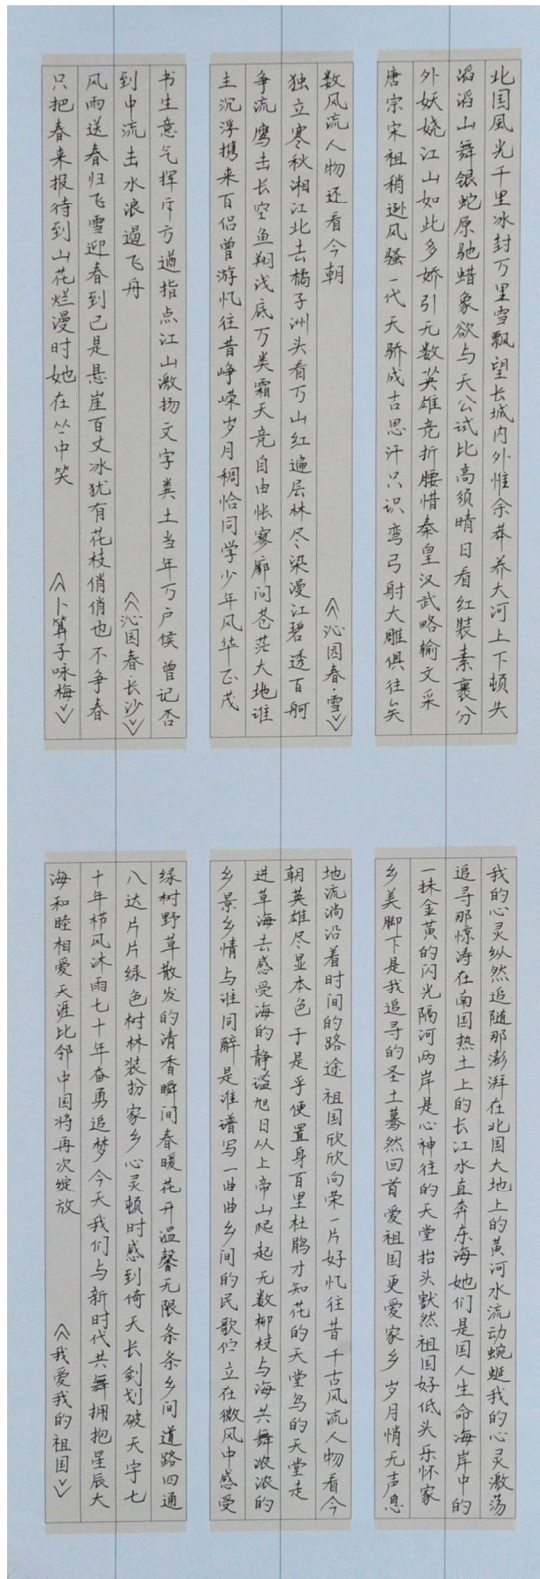 北国風光千里冰封万里雪飘望长城内外惟余莽莽大河上下顿失
滔滔山舞银蛇原驰蜡象欲与天公试比高须晴日看红装素裹分
外妖娆江山如此多娇引无数英雄竞折腰惜秦皇汉武略输文采
唐宗宋祖稍逊风骚一代天骄成吉思汗只识弯弓射大雕俱往矣
数风流人物还看今朝 《沁园春·雪》
独立寒秋湘江北去橘子洲头看万山红遍层林尽染漫江碧透百舸
争流鹰击长空鱼翔浅底万类霜天竞自由怅寥廓问苍茫大地谁
主沉浮携来百侣曾游忆往昔峥嵘岁月稠恰同学少年风华正茂
书生意气挥斥方遒指点江山激扬文字粪土当年万户侯曾记否
到中流击水浪遏飞舟 《沁园春·长沙》
风雨送春归飞雪迎春到已是悬崖百丈冰犹有花枝俏俏也不争春
只把春来报待到山花烂漫时她在丛中笑 《卜算子咏梅》
我的心灵纵然追随那澎湃在北国大地上的黄河水流动蜿蜒我的心灵激荡
追寻那惊涛在南国热土上的长江水直奔东海她们是国人生命海岸中的
一抹金黄的闪光隔河两岸是心神往的天堂抬头默然祖国好低头乐怀家
乡美脚下是我追寻的圣土蓦然回首爱祖国更爱家乡岁月悄无声息
地流淌沿着时间的路途祖国欣欣向荣一片好忆往昔千古风流人物看今
朝英雄尽显本色于是乎便置身百里杜鹃才知花的天堂鸟的天堂走
进草海去感受海的静谧旭日从上帝山爬起无数柳枝与海共舞浓浓的
乡景乡情与谁同醉是谁谱写一曲曲乡间的民歌伫立在微风中感受
绿树野草散发的清香瞬间春暖花开温馨无限条条乡间道路四通
八达片片绿色树林装扮家乡心灵顿时感到倚天长剑划破天宇七
十年栉风沐雨七十年奋勇追梦今天我们与新时代共舞拥抱星辰大
海和睦相爱天涯比邻中国将再次绽放 《我爱我的祖国》